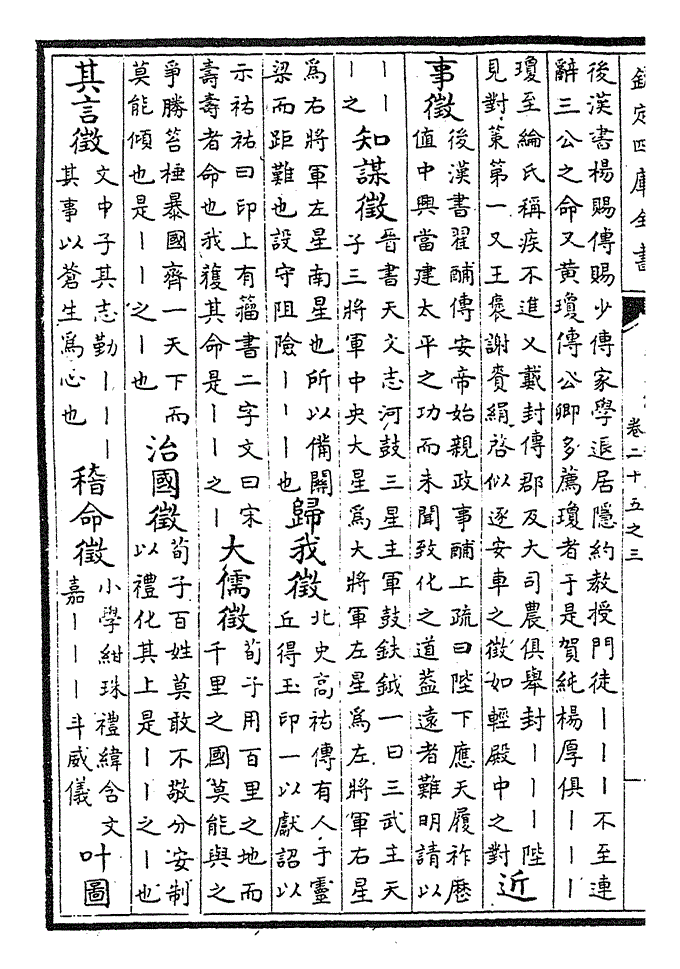 欽定四庫全書
卷二十五之三
後漢書楊賜傳賜少傳家學退居隱約教授門徒丨丨丨不至連
辭三公之命又黃瓊傳公卿多薦瓊者于是賀純楊厚俱丨丨丨
瓊至綸氏稱疾不進又戴封傳郡及大司農俱舉封丨丨丨陛
見對策第一又王褒謝賚絹啓似逐安車之徵如輕殿中之對
近
事徵
後漢書翟酺傳安帝始親政事酺上疏曰陛下應天履祚歷
值中興當建太平之功而未聞致化之道葢遠者難明請以
丨丨
丨之
知謀徵
晉書天文志河鼓三星主軍鼓鈇鉞一曰三武主天
子三將軍中央大星爲大將軍左星爲左將軍右星
爲右將軍左星南星也所以備關
梁而距難也設守阻險丨丨丨也
歸我徵
北史高祐傳有人于靈
丘得玉印一以獻詔以
示祐祐曰印上有籀書二字文曰宋
壽壽者命也我獲其命是丨丨之丨
大儒徵
荀子用百里之地而
千里之國莫能與之
爭勝笞棰暴國齊一天下而
莫能傾也是丨丨之丨也
治國徵
荀子百姓莫敢不敬分安制
以禮化其上是丨丨之丨也
其言徵
文中子其志勤丨丨丨
其事以蒼生爲心也
稽命徵
小學紺珠禮緯含文
嘉丨丨丨斗威儀
叶圖